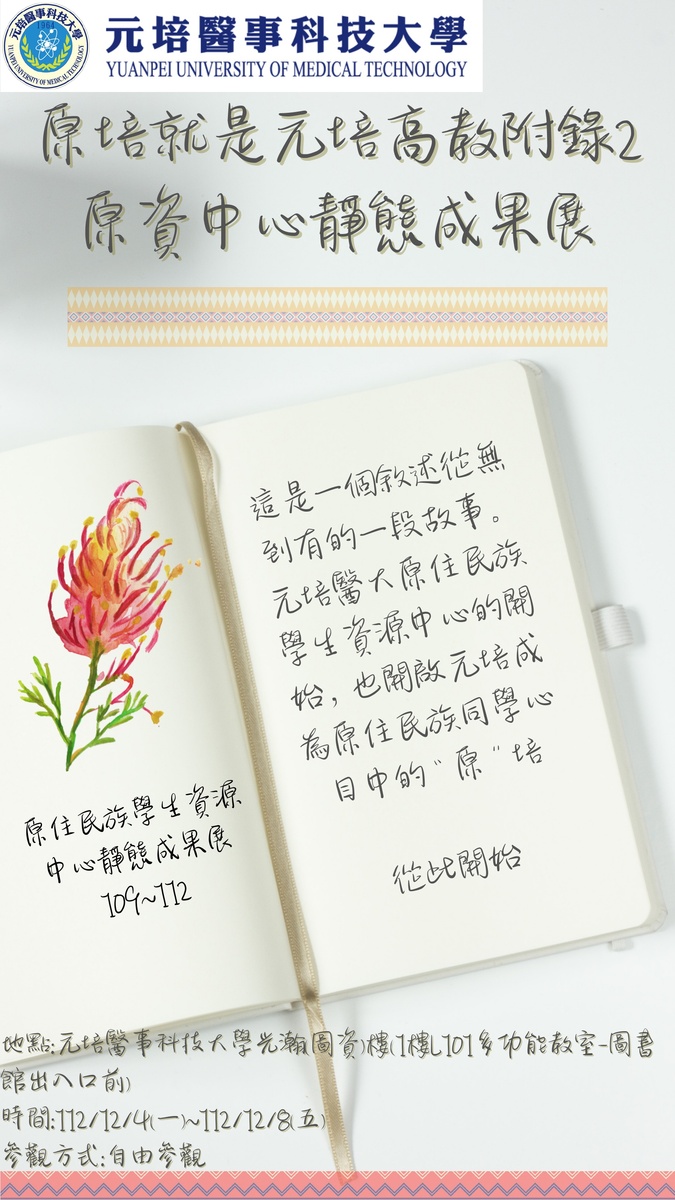 元培醫事科技大學
YUANPEI UNIVERSITY OF MEDICAL TECHNOLOGY
1964
元培醫事科技大學
YUANPEI UNIVERSITY OF MEDICAL TECHNOLOGY
原培就是元培高教附錄2
原資中心靜態成果展
這是一個敘述從無
到有的一段故事。
元培醫大原住民族
學生資源中心的開
始，也開啟元培成
為原住民族同學心
目中的"原"培
從此開始
原住民族學生資源
中心靜態成果展
109~112
地點:元培醫事科技大學光瀚(圖資)樓(1樓L101多功能教室-圖書
館出入口前)
時間:112/12/4(一)~112/12/8(五)
參觀方式:自由參觀